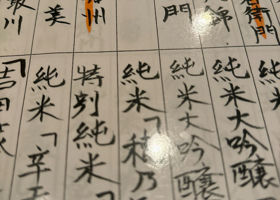 衛門
錦
門
州
美
川
純米大吟醸
純米大吟醸
純米「秋乃
特別純米
純米「辛
「吉田